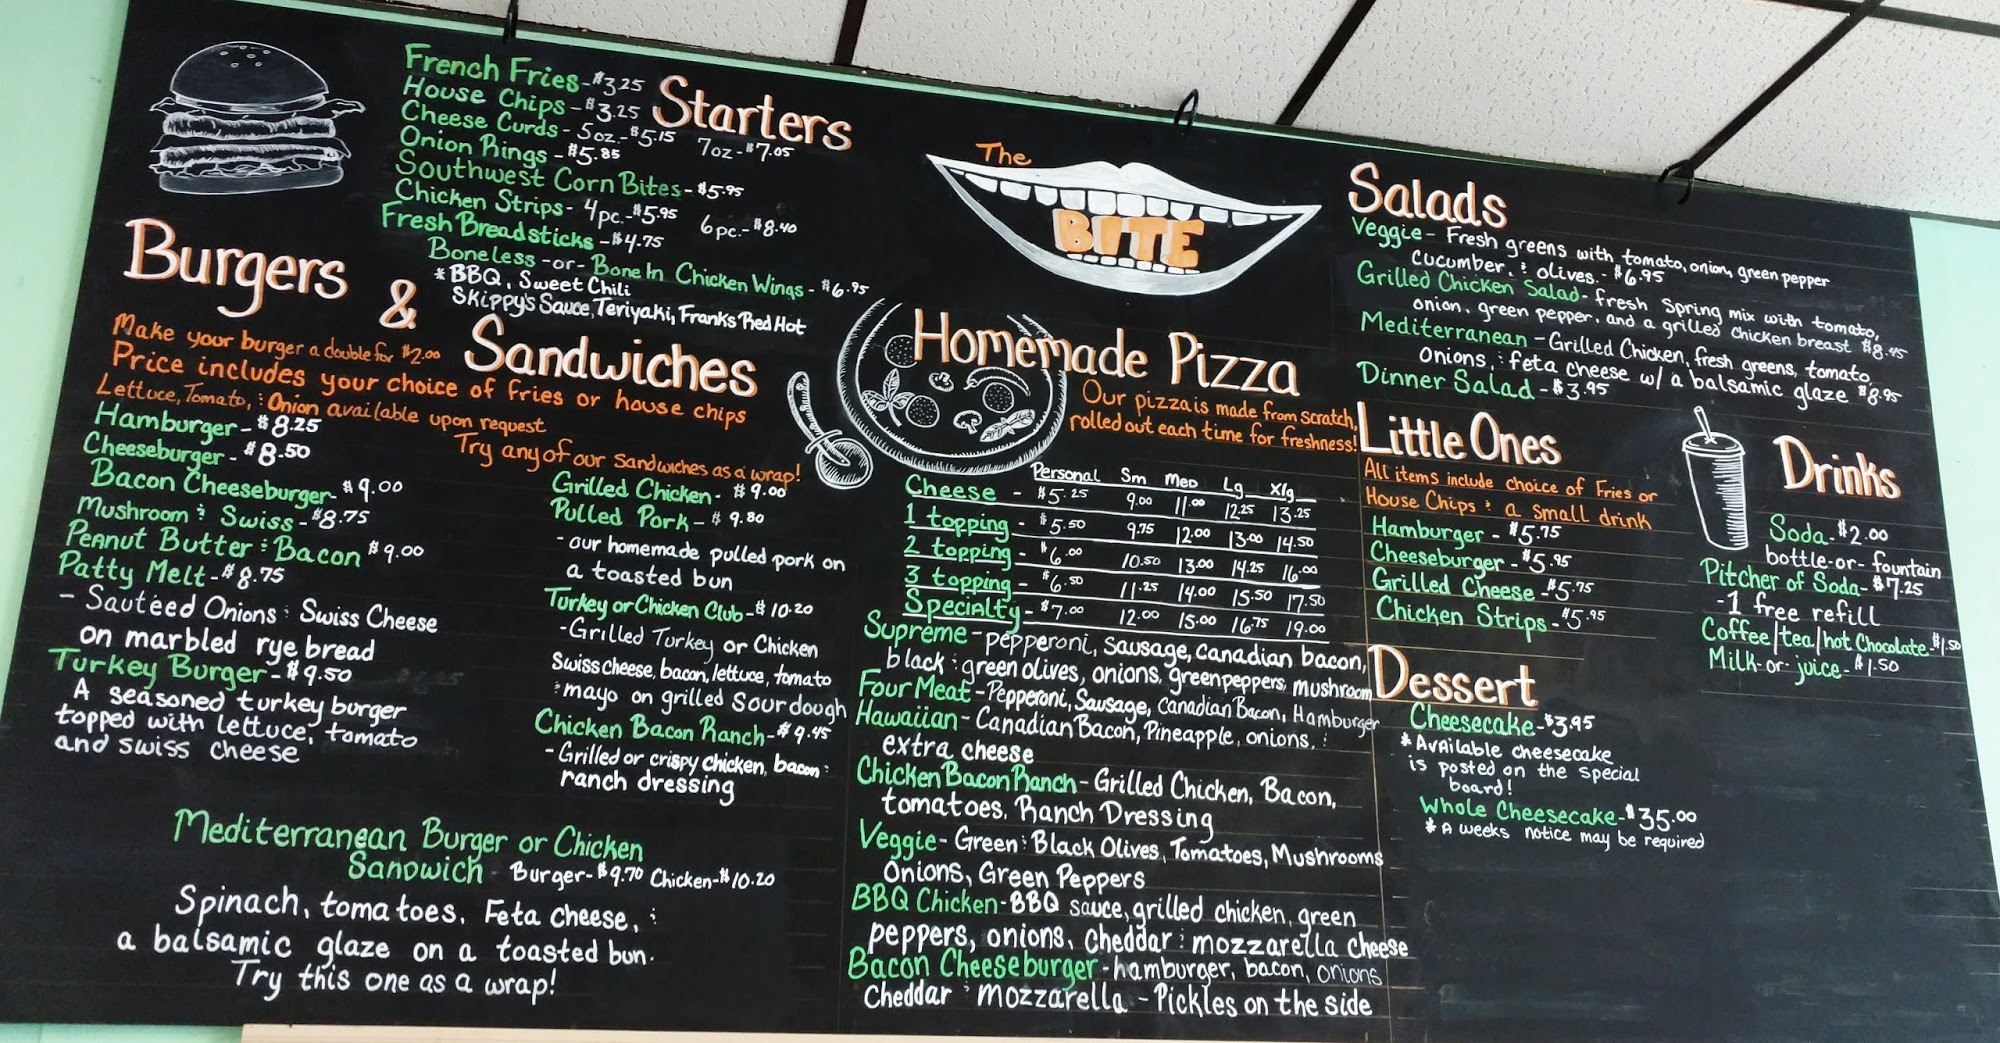 French Fries - $3.25
House Chips - $3.25
Cheese Curds - 5oz. - $5.15 7oz - $7.05
Onion Rings - $5.85
Southwest Corn Bites - $5.95
Chicken Strips - 4pc. - $5.95 6pc. - $8.40
Fresh Breadsticks - $4.75
Boneless -or- Bone In Chicken Wings - $6.95
* BBQ, Sweet Chili
Skippy's Sauce, Teriyaki, Franks Red Hot
Starters
Burgers
&
Sandwiches
Make your burger a double for $2.00
Price includes your choice of fries or house chips
Lettuce, Tomato, & Onion available upon request
Try any of our sandwiches as a wrap!
Hamburger - $8.25
Cheeseburger - $8.50
Bacon Cheeseburger - $9.00
Mushroom & Swiss - $8.75
Peanut Butter & Bacon $9.00
Patty Melt - $8.75
- Sauteed Onions & Swiss Cheese
on marbled rye bread
Turkey Burger - $9.50
A seasoned turkey burger
topped with lettuce, tomato
and swiss cheese
Grilled Chicken - $9.00
Pulled Pork - $9.80
- our homemade pulled pork on
a toasted bun
Turkey or Chicken Club - $10.20
- Grilled Turkey or Chicken
Swiss cheese, bacon, lettuce, tomato
& mayo on grilled Sourdough
Chicken Bacon Ranch - $9.45
- Grilled or crispy chicken, bacon &
ranch dressing
Mediterranean Burger or Chicken
Sandwich - Burger - $9.70 Chicken - $10.20
Spinach, tomatoes, Feta Cheese, &
a balsamic glaze on a toasted bun.
Try this one as a wrap!
The
BITE
Homemade Pizza
Our pizza is made from scratch,
rolled out each time for freshness!
Personal Sm Med Lg Xlg
Cheese - $5.25 9.00 11.00 12.25 13.25
1 topping - $5.50 9.75 12.00 13.00 14.50
2 topping - $6.00 10.50 13.00 14.25 16.00
3 topping - $6.50 11.25 14.00 15.50 17.50
Specialty - $7.00 12.00 15.00 16.75 19.00
Supreme - pepperoni, sausage, canadian bacon,
black & green olives, onions, green peppers, mushroom
Four Meat - Pepperoni, Sausage, Canadian Bacon, Hamburger
Hawaiian - Canadian Bacon, Pineapple, onions, &
extra cheese
Chicken Bacon Ranch - Grilled Chicken, Bacon,
tomatoes, Ranch Dressing
Veggie - Green & Black Olives, Tomatoes, Mushrooms
Onions, Green Peppers
BBQ Chicken - BBQ sauce, grilled chicken, green
peppers, onions, cheddar & mozzarella cheese
Bacon Cheeseburger - hamburger, bacon, onions
cheddar & mozzarella - Pickles on the side
Salads
Veggie - Fresh greens with tomato, onion, green pepper
cucumber, & olives. - $6.95
Grilled Chicken Salad - fresh spring mix with tomato,
onion, green pepper, and a grilled chicken breast $8.45
Mediterranean - Grilled Chicken, fresh greens, tomato,
onions, & feta cheese w/ a balsamic glaze $8.95
Dinner Salad - $3.95
Little Ones
All items include choice of Fries or
House Chips & a small drink
Hamburger - $5.75
Cheeseburger - $5.95
Grilled Cheese - $5.75
Chicken Strips - $5.95
Dessert
Cheesecake - $3.95
* Available cheesecake
is posted on the special
board!
Whole Cheesecake - $35.00
* A weeks notice may be required
Drinks
Soda - $2.00
bottle -or- fountain
Pitcher of Soda - $7.25
- 1 free refill
Coffee/tea/hot chocolate - $1.50
Milk -or- juice - $1.50